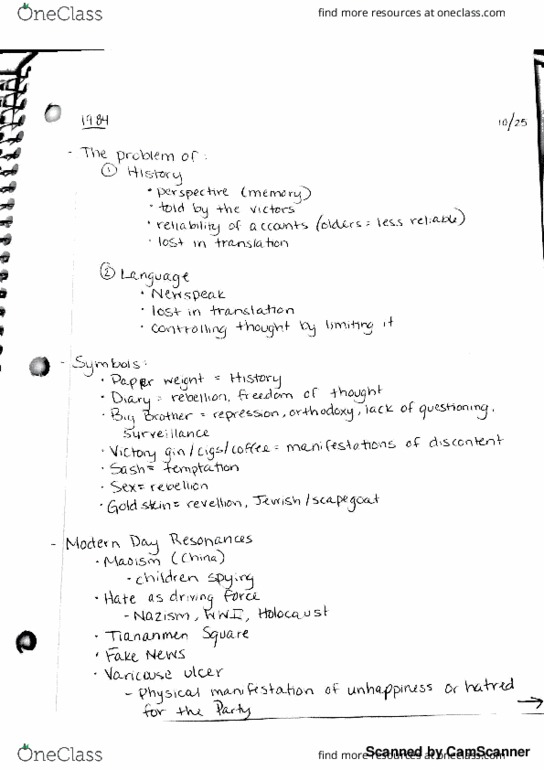 OneClass
find more resources at oneclass.com
1984
10/25
- The problem of:
① History
• perspective (memory)
• told by the victors
• reliability of accounts (olders = less reliable)
• lost in translation
② Language
• Newspeak
• lost in translation
• controlling thought by limiting it
- Symbols:
• Paper weight = History
• Diary = rebellion, freedom of thought
• Big Brother = repression, orthodoxy, lack of questioning,
surveillance
• Victory gin/cigs/coffee = manifestations of discontent
• Sash = temptation
• Sex = rebellion
• Goldskin = revellion, Jewish/scapegoat
- Modern Day Resonances
• Maoism (China)
• children spying
• Hate as driving force
- Nazism, WWII, Holocaust
• Tiananmen Square
• Fake News
• Varicouse ulcer
- Physical manifestation of unhappiness or hatred
for the Party →
OneClass
find more resources at oneclass.com
Scanned by CamScanner